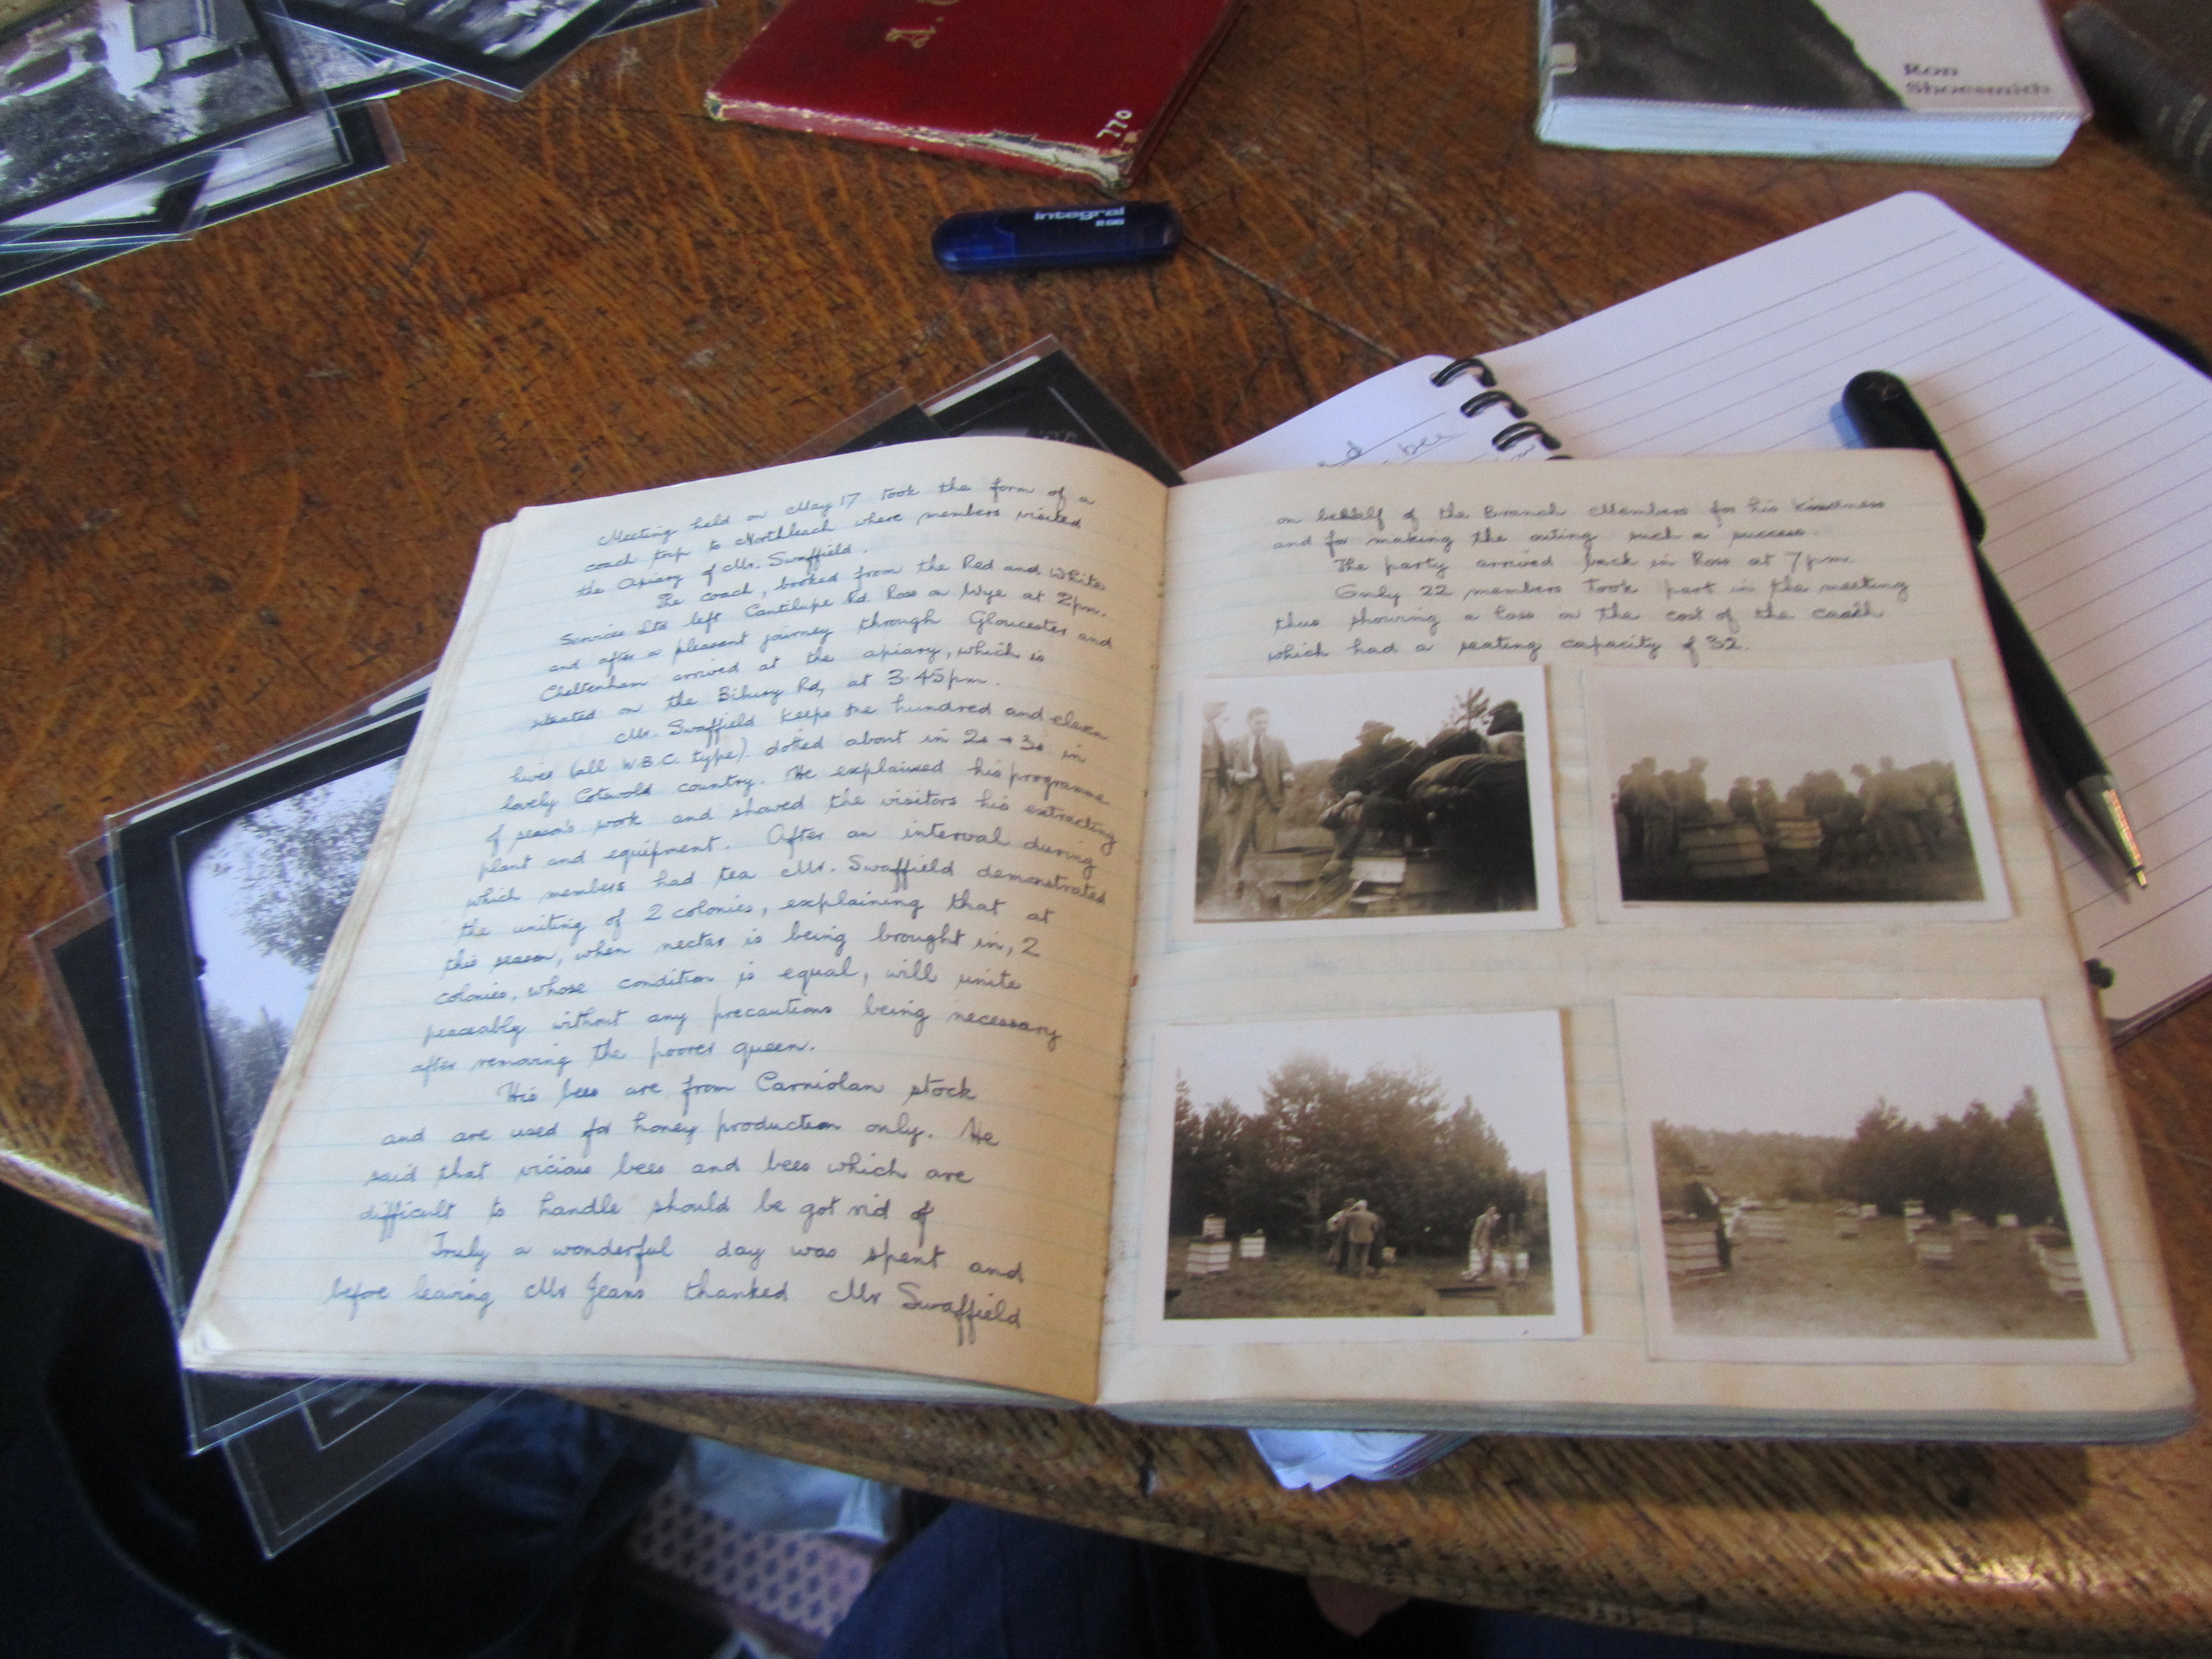 770
Ron
Shoesmith
integral
2GB
bee
Meeting held on May 17 took the form of a
coach trip to Northleach where members visited
the Apiary of Mr. Swaffield.
The coach, booked from the Red and White
Services Ltd left Cantilupe Rd. Ross on Wye at 2pm.
and after a pleasant journey through Gloucester and
Cheltenham arrived at the apiary, which is
situated on the Bibury Rd, at 3.45pm.
Mr. Swaffield keeps one hundred and eleven
hives (all W.B.C. type). dotted about in 2s + 3s in
lovely Cotswold country. He explained his programme
of season's work and showed the visitors his extracting
plant and equipment. After an interval during
which members had tea Mr. Swaffield demonstrated
the uniting of 2 colonies, explaining that at
this season, when nectar is being brought in, 2
colonies, whose condition is equal, will unite
peaceably without any precautions being necessary
after removing the poorer queen.
His bees are from Carniolan stock
and are used for honey production only. He
said that vicious bees and bees which are
difficult to handle should be got rid of
Truly a wonderful day was spent and
before leaving Mr Jeans thanked Mr Swaffield
on behalf of the Branch Members for his kindness
and for making the outing such a success.
The party arrived back in Ross at 7pm.
Only 22 members took part in the meeting
thus showing a loss on the cost of the coach
which had a seating capacity of 32.